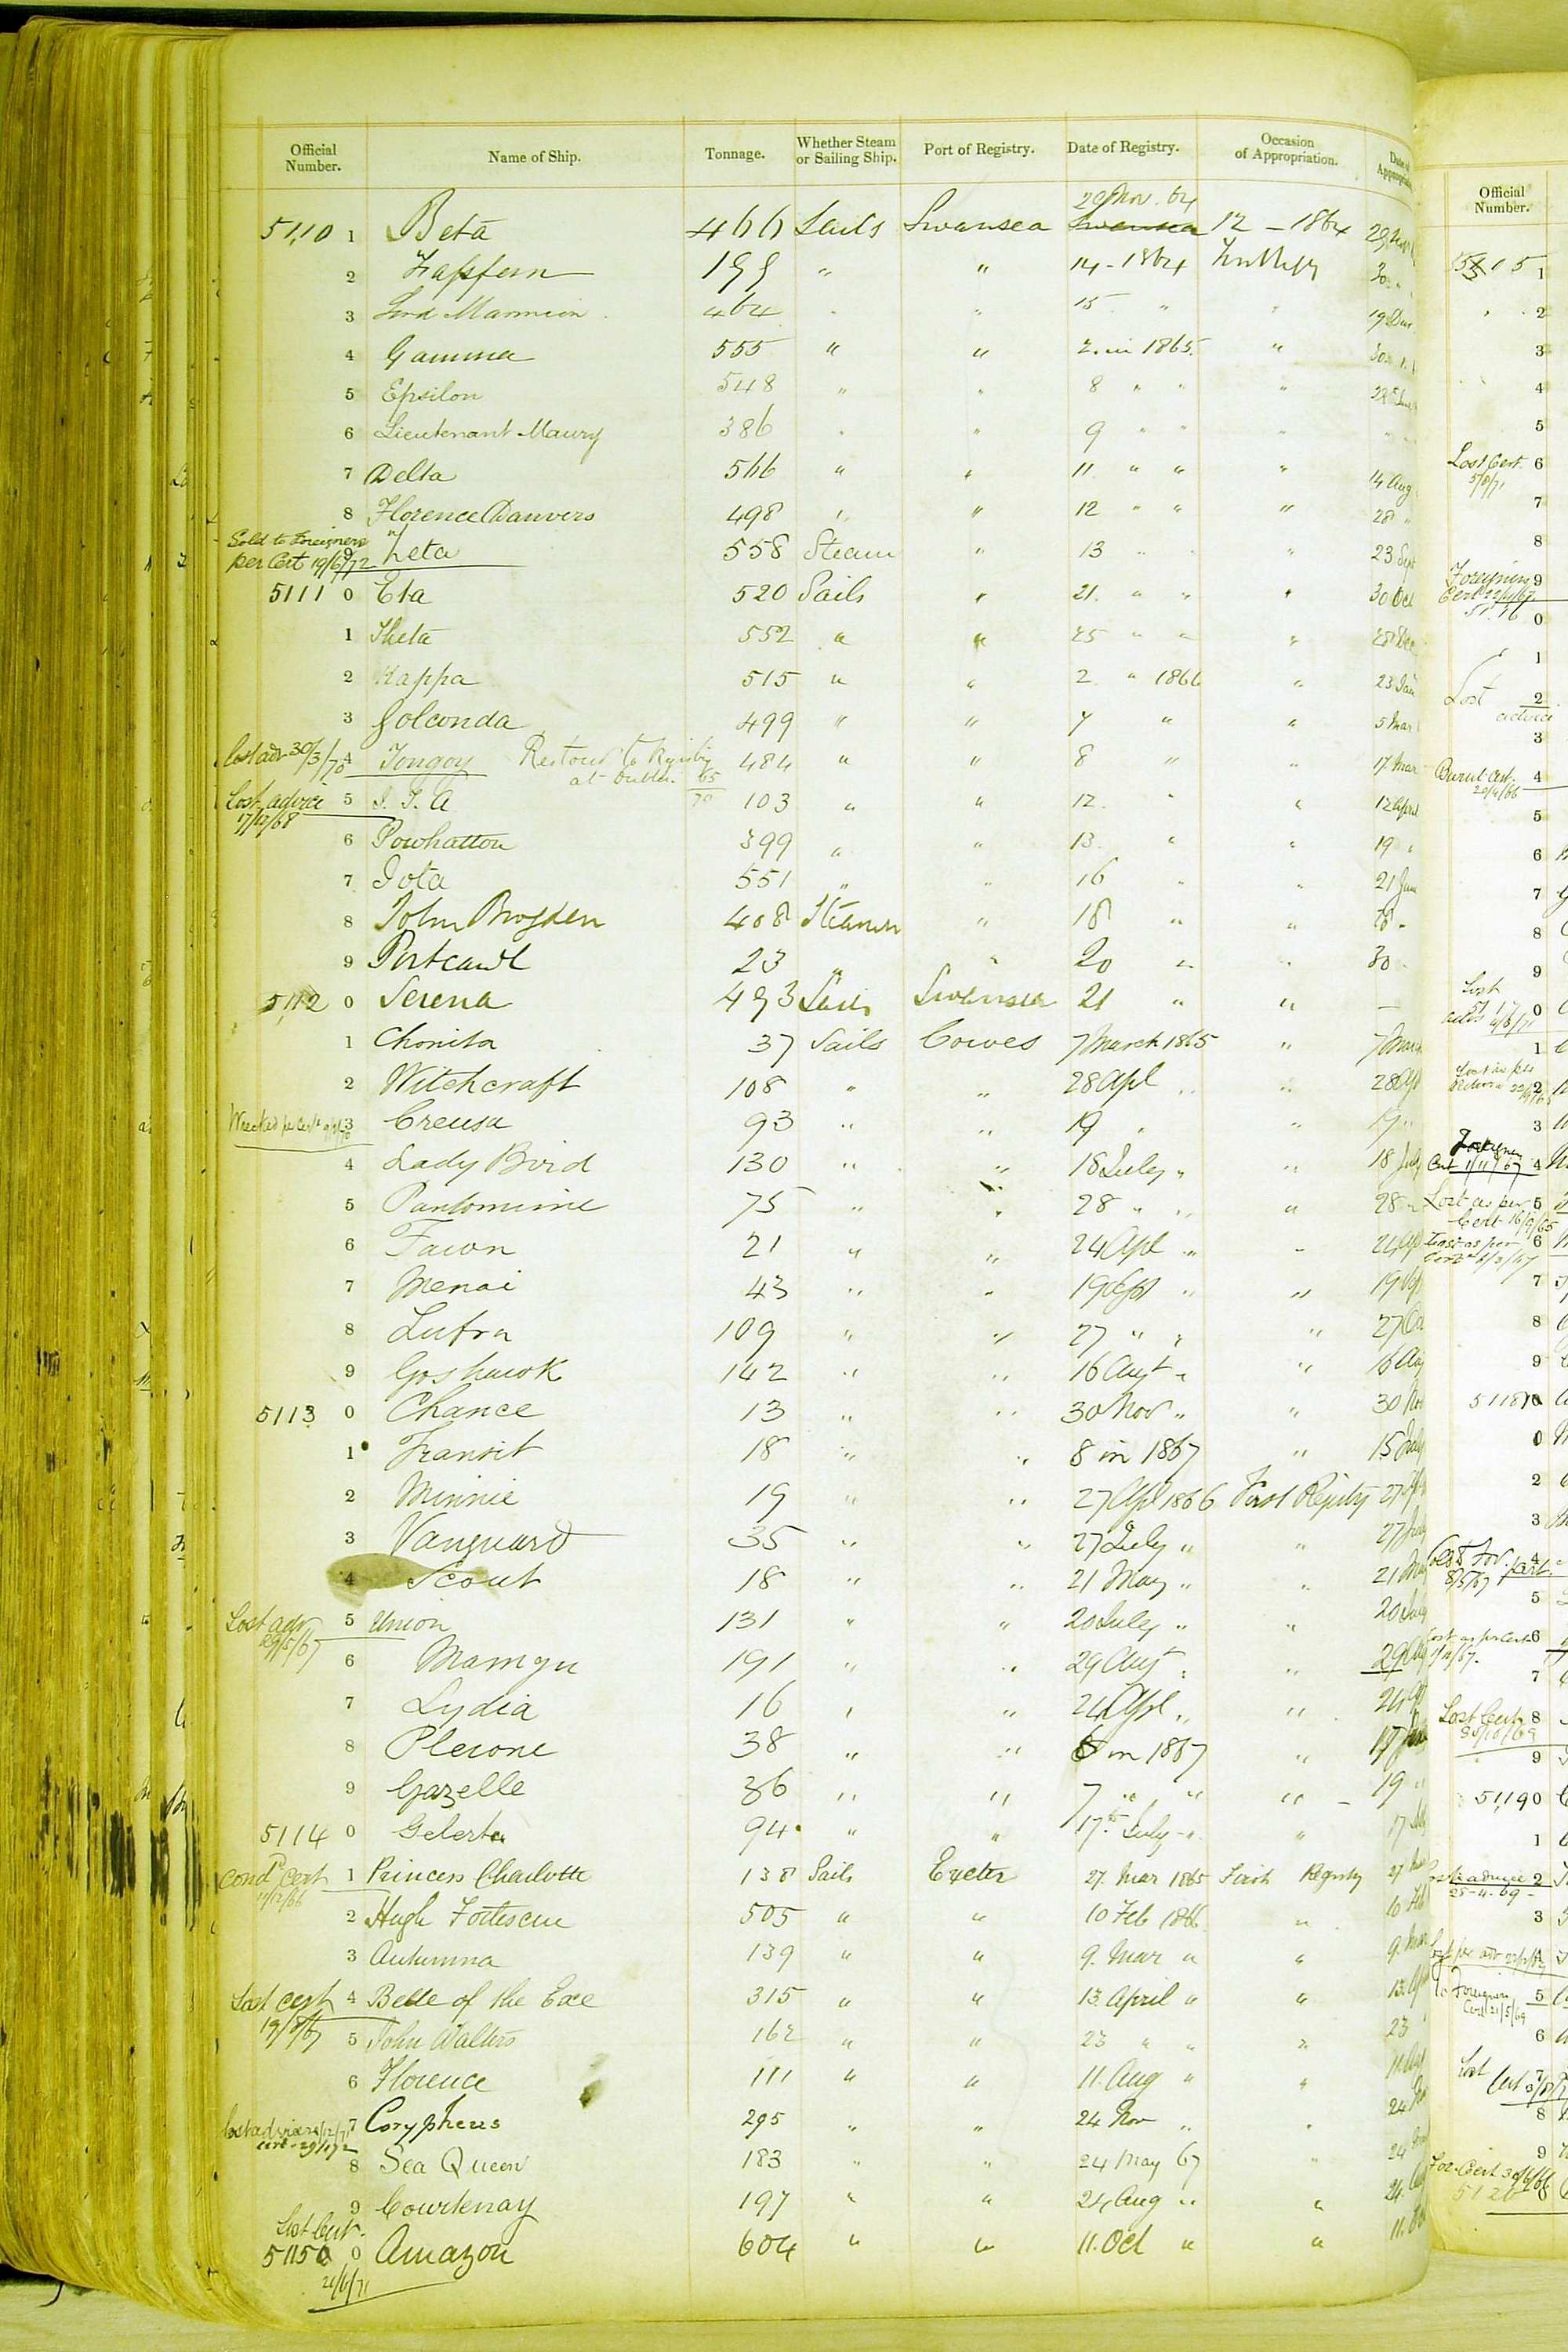 Official Number. Name of Ship. Tonnage. Whether Steam or Sailing Ship. Port of Registry. Date of Registry. Occasion of Appropriation.
29 Nov. 64
5110 1 Beta 466 Sails Swansea Swansea 12 - 1864
2 199 " " 14 - 1864 30
3 Lord Marmion 464 " " 15 " " 19 Dec
4 Gamma 555 " " 2. in 1865. " 30
5 Epsilon 548 " " 8 " " " 28
6 Lieutenant Maury 386 " " 9 " " "
7 Delta 566 " " 11. " " " 14 Aug
8 Florence Danvers 498 " " 12 " " " 28 "
Sold to Foreigners
per Cert 19/6/72 9 Zeta 558 Steam " 13 " " " 23 Sept
5111 0 Eta 520 Sails " 21. " " " 30 Oct
1 Theta 552 " " 25 " " " 28 Dec
2 Kappa 515 " " 2. " 1866 " 23 Jan
3 Golconda 499 " " 7 " " 5 Mar
Lost adv 30/3/70 4 Tongoy Restored to Registry 484 " " 8 " " 17 Mar
at Dublin 65/70
Lost advice 5 I. T. A 103 " " 12. " " 12 April
17/12/68
6 Powhatton 399 " " 13. " " 19 "
7 Iota 551 " " 16 " " 21 June
8 John Brogden 408 Steamer " 18 " "
9 Portcawl 23 " " 20 " " 30
5112 0 Serena 493 Sails Swansea 21 " " —
1 Chonita 37 Sails Cowes 7 March 1865 " 7 March
2 Witchcraft 108 " " 28 Apl " " 28 Apl
Wrecked per Cert 3 Creusa 93 " " 19 " " 19 "
4 Lady Bird 130 " " 18 July " " 18 July
5 Pantomime 75 " " 28 " " " 28 "
6 Fawn 21 " " 24 Apl " " 24 Ap
7 Menai 43 " " 19 " " 19
8 Lufra 109 " " 27 " " " 27
9 Goshawk 142 " " 16 Augt " " 16 Aug
5113 0 Chance 13 " " 30 Nov " " 30 Nov
1 Transit 18 " " 8 in 1867 " 15 July
2 Minnie 19 " " 27 Apl 1866 First Registry 27 Ap
3 Vanguard 35 " " 27 July " " 27 July
4 Scout 18 " " 21 May " " 21 May
Lost adv 5 Union 131 " " 20 July " " 20 July
29/5/67
6 191 " " 29 Augt " " 29 Aug
7 Lydia 16 " " 24 Apl " " 24 Ap
8 Pleione 38 " " 6 in 1867 " 17
9 Gazelle 36 " " 7 " " " 19 "
5114 0 Gelert 94 " " 17th July " " 17
Condd Cert 1 Princess Charlotte 138 Sails Exeter 27. Mar 1865 First Registry 27 Mar
17/12/66
2 Hugh Fortescue 505 " " 10 Feb 1866 " 10 Feb
3 Autumna 139 " " 9. Mar " " 9. Mar
Lost cert 4 Belle of the Exe 315 " " 13. April " " 13. Ap
19/8/67 5 John Walters 162 " " 23 " " " 23
6 Florence 111 " " 11. Aug " " 11. Aug
Lost advice 7 Corypheus 295 " " 24 Nov " " 24
8 Sea Queen 183 " " 24 May 67 " 24
9 Courtenay 197 " " 24 Aug " " 24.
Lost Cert.
51150 0 Amazon 604 " " 11. Oct " " 11. Oc
21/6/71
Official Number.
1
2
3
4
5
Lost Cert. 6
5/8/71
7
8
Foreigners 9
Cert 22/4/67
51.16 0
1
Lost 2
advice
3
Burnt Cert. 4
20/4/66
5
6
7
8
9
Lost
0
1
2
3
Foreigner
Cert 1/11/67 4
Lost as per 5
Cert 16/9/65
Lost as per 6
Cert 2/3/67
7
8
9
0
2
3
4
8/5/67
5
Lost as per Cert 6
7
Lost Cert 8
30/10/69
9
51190
1
Lost advice 2
25-4-69
3
4
To Foreigners 5
Cert 21/5/69
6
Lost 7
Cert
8
9
For. Cert 30/6/66
5120 0